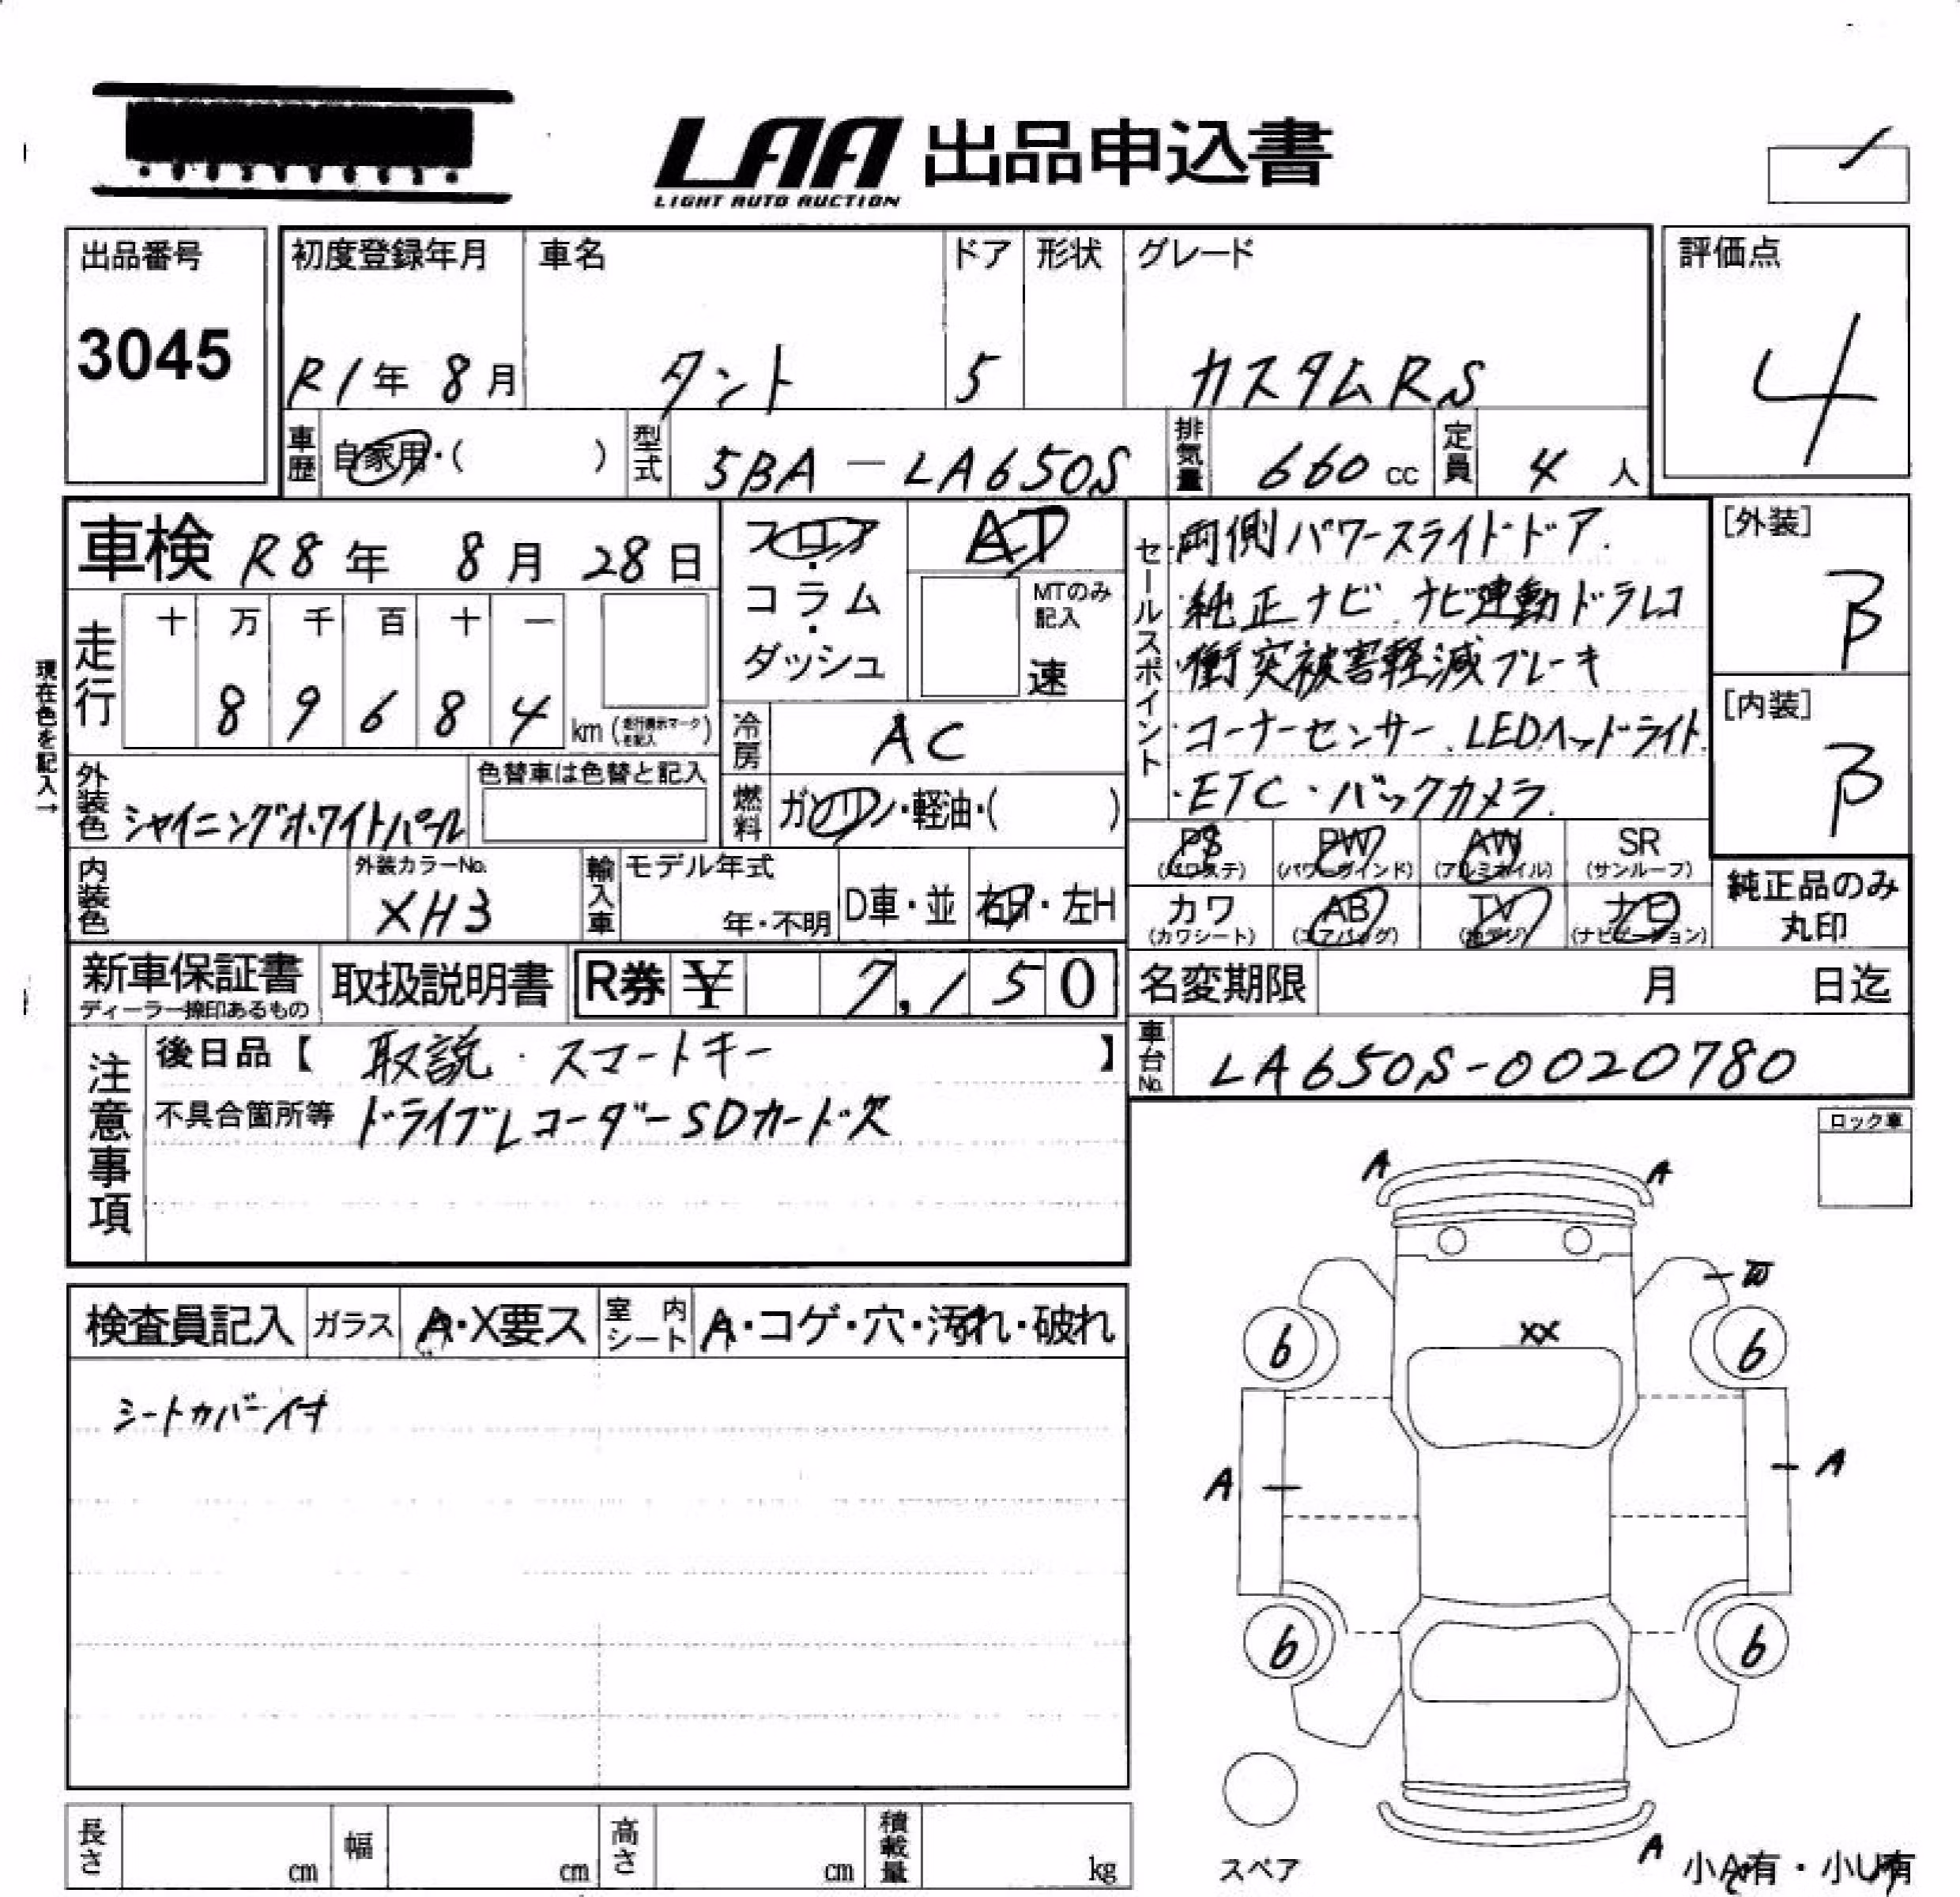 LAA 出品申込書
LIGHT AUTO AUCTION
出品番号
3045
初度登録年月
R1年 8月
車名
タント
ドア
5
形状
グレード
カスタムRS
評価点
4
車歴 自家用・( )
型式 5BA-LA650S
排気量 660 cc
定員 4 人
車検 R8年 8月 28日
走行 十 万 千 百 十 一
8 9 6 8 4 km (走行表示マークを記入)
現在色を記入→
外装色 シャイニングホワイトパール
色替車は色替と記入
内装色
外装カラーNo.
XH3
フロア・コラム・ダッシュ
AT
MTのみ記入
速
冷房 AC
燃料 ガソリン・軽油・( )
輸入車 モデル年式
年・不明
D車・並
右H・左H
セールスポイント
・両側パワースライドドア.
・純正ナビ.ナビ連動ドラレコ
・衝突被害軽減ブレーキ
・コーナーセンサー.LEDヘッドライト.
・ETC・バックカメラ.
[外装]
B
[内装]
B
PS (パワステ)
PW (パワーウインド)
AW (アルミホイル)
SR (サンルーフ)
カワ (カワシート)
AB (エアバッグ)
TV (地デジ)
ナビ (ナビゲーション)
純正品のみ
丸印
新車保証書
ディーラー捺印あるもの
取扱説明書
R券 ¥ 7,150
名変期限 月 日迄
車台No. LA650S-0020780
注意事項
後日品【 取説・スマートキー 】
不具合箇所等 ドライブレコーダーSDカード欠
ロック車
検査員記入
ガラス A・X要ス
室内シート A・コゲ・穴・汚れ・破れ
シートカバー付
A A
XX
6 6
A A
6 6
スペア
A
小A有・小U有
長さ cm
幅 cm
高さ cm
積載量 kg